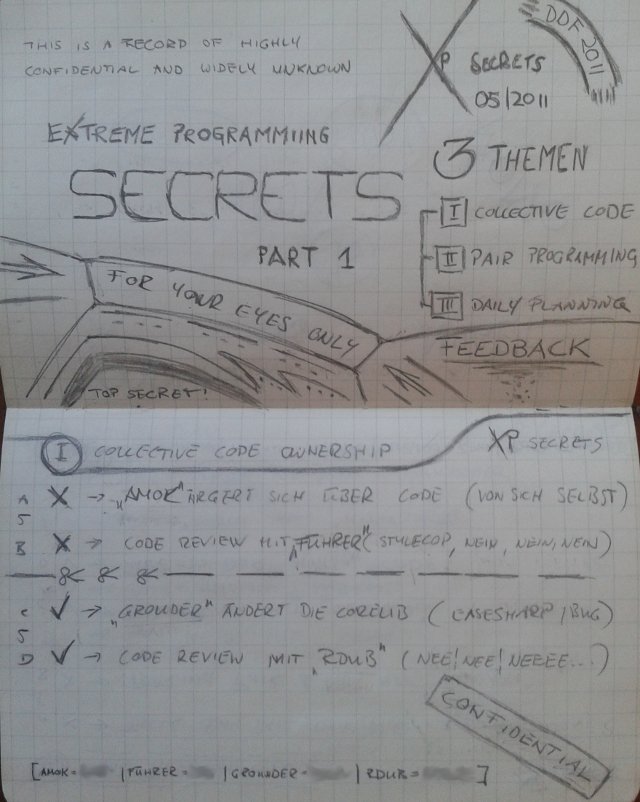 THIS IS A RECORD OF HIGHLY
CONFIDENTIAL AND WIDELY UNKNOWN
XP SECRETS
05/2011
DDF 2011
EXTREME PROGRAMMIING
SECRETS
PART 1
3 THEMEN
I COLLECTIVE CODE
II PAIR PROGRAMMING
III DAILY PLANNING
FEEDBACK
FOR YOUR EYES ONLY
TOP SECRET!
I COLLECTIVE CODE OWNERSHIP
XP SECRETS
A X → „AMOK" ÄRGERT SICH ÜBER CODE (VON SICH SELBST)
5
B X → CODE REVIEW MIT „FÜHRER" (STYLECOP, NEIN, NEIN, NEIN)
C ✓ → „GROUDER" ÄNDERT DIE CORELIB (EASESHARP/BUG)
5
D ✓ → CODE REVIEW MIT „RDUB" (NEE! NEE! NEEEE...)
CONFIDENTIAL
[AMOK= |FÜHRER= |GROUNDER= |RDUB= ]